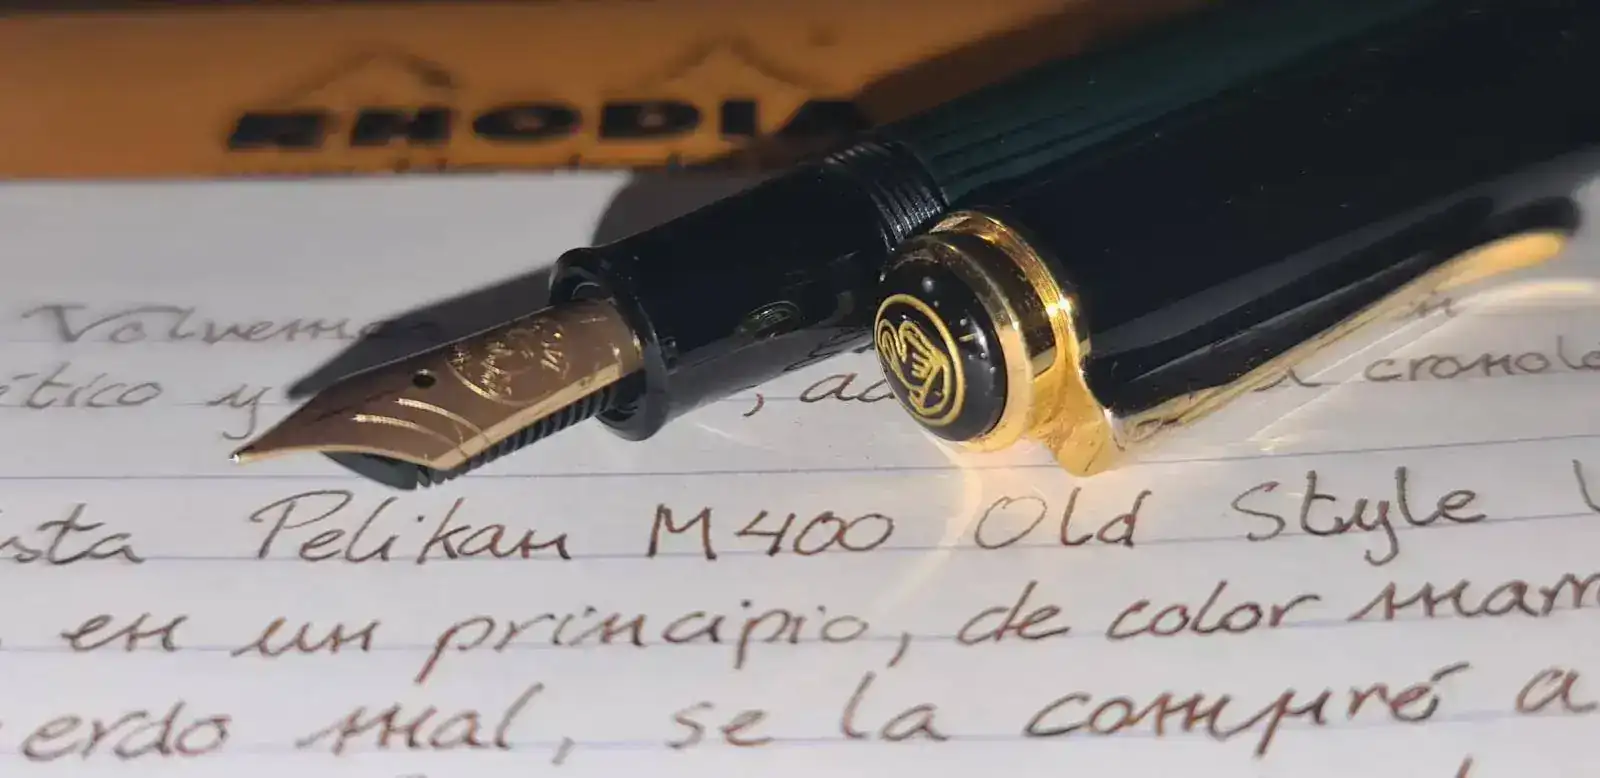 RHODIA
Volvemos
ético y , a cronoló
sta Pelikan M400 Old Style
en un principio, de color marr
erdo mal, se la compré a